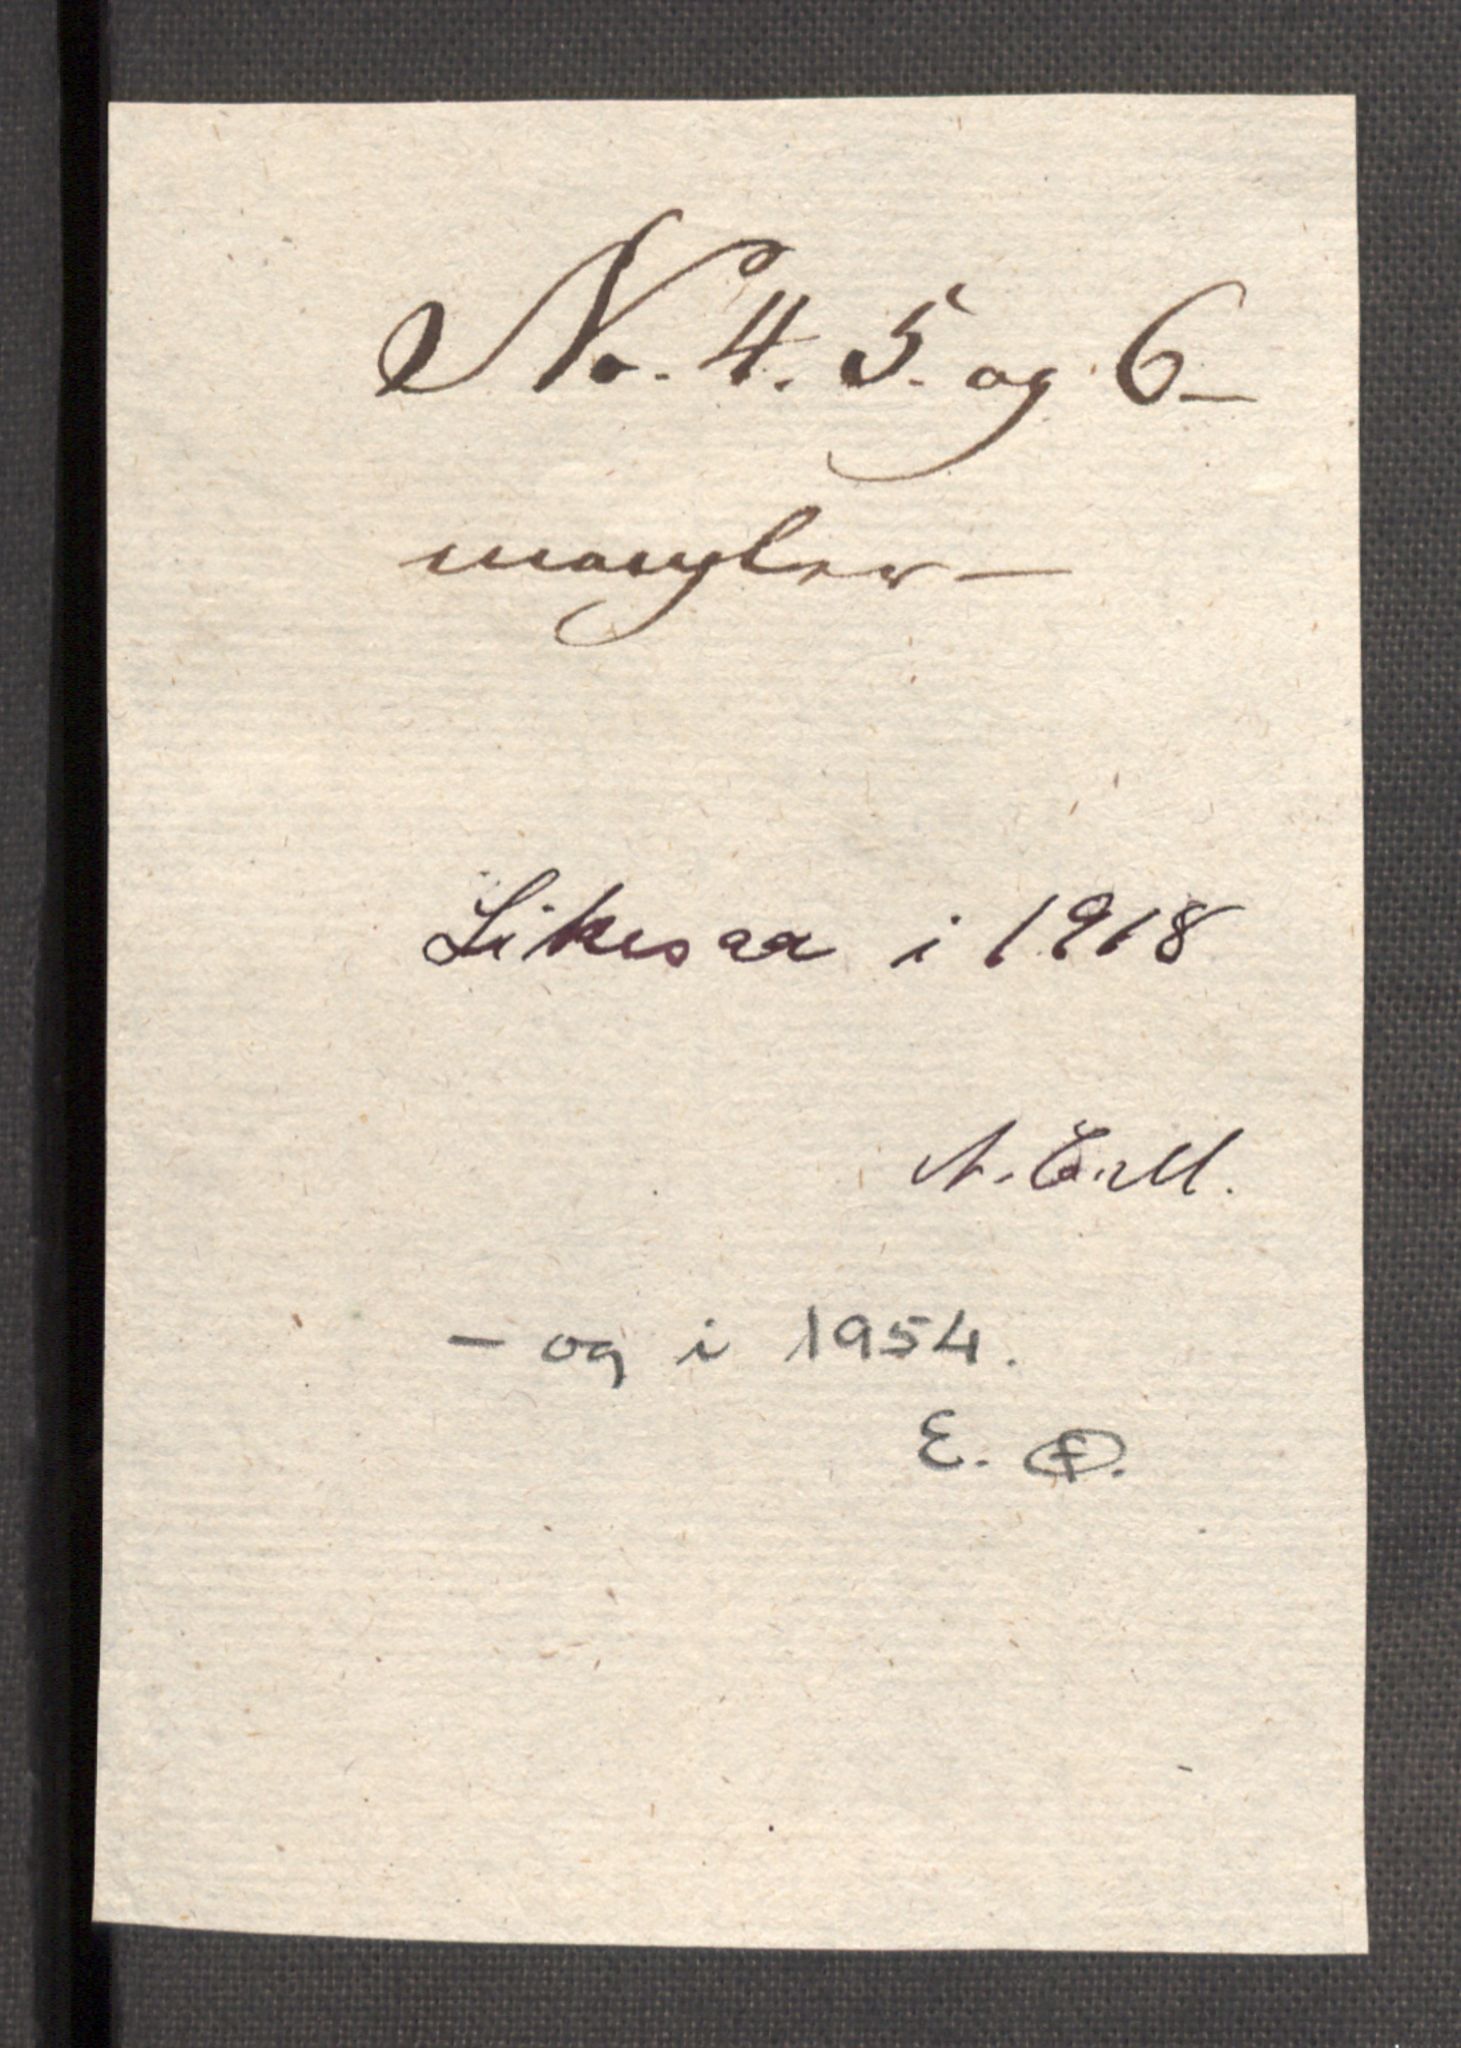 No. 4. 5. og 6 –
mangler –
Likesaa i 1918
A. E. M.
– og i 1954.
E.